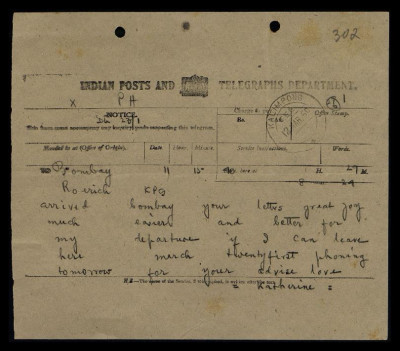 302
INDIAN POSTS AND TELEGRAPHS DEPARTMENT.
1
X PA
NOTICE.
Charges to pay
Rs. As.
Office Stamp.
KALIMPONG
This form must accompany any inquiry made respecting this telegram.
Handed in at (Office of Origin). Date Hour Minute Service Instructions. Words.
TO Bombay 11 15 H. 29 M.
8 29
Roerich KPG
arrived bombay your letters great joy
much easier and better for
my departure if I can leave
here march twentyfirst phoning
tomorrow for your advise love
= Katherine =
N.B.—The name of the Sender, if telegraphed, is written after the text.